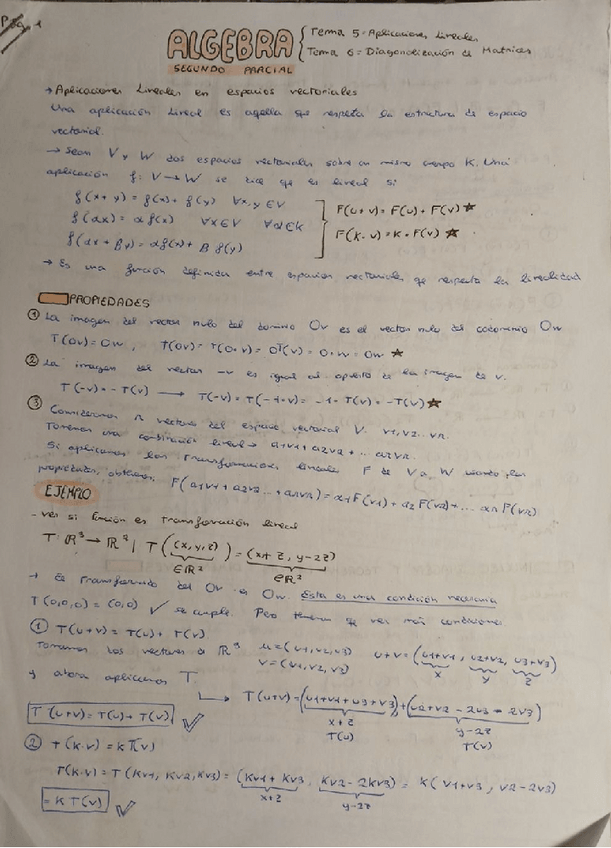 Pág 1
ALGEBRA { Tema 5 = Aplicaciones Lineales
Tema 6 = Diagonalización de Matrices
SEGUNDO PARCIAL
→ Aplicaciones Lineales en espacios vectoriales
Una aplicación lineal es aquella que respeta la estructura de espacio
vectorial.
→ Sean V y W dos espacios vectoriales sobre un mismo cuerpo K. Una
aplicación f: V → W se dice que es lineal si
f(x+y) = f(x) + f(y) ∀x,y ∈ V
f(αx) = α f(x) ∀x ∈ V ∀α ∈ K
f(αx + βy) = αf(x) + β f(y)
F(u+v) = F(u) + F(v) ★
F(K·u) = K·F(v) ★
→ Es una función definida entre espacios vectoriales q respeta la linealidad
PROPIEDADES
① La imagen del vector nulo del dominio Ov es el vector nulo del codominio Ow
T(Ov) = Ow, T(Ov) = T(0·v) = 0T(v) = 0·w = Ow ★
② La imagen del vector -v es igual al opuesto de la imagen de v.
T(-v) = -T(v) → T(-v) = T(-1·v) = -1·T(v) = -T(v) ★
③ Consideremos n vectores del espacio vectorial V: v1, v2... vn.
Tomemos una combinación lineal → a1v1 + a2v2 + ... anvn.
Si aplicamos las transformaciones lineales F de V a W usando las
propiedades, obtenemos F(a1v1 + a2v2... + anvn) = a1F(v1) + a2F(v2) + ... an F(vn)
EJEMPLO
- ver si función es transformación lineal
T: R³ → R² | T((x,y,z)) = (x+z, y-2z)
∈R² ∈R²
→ transformado del Ov es Ow. Esta es una condición necesaria
T(0,0,0) = (0,0) ✓ se cumple. Pero tenemos q ver más condiciones
① T(u+v) = T(u) + T(v)
Tomemos los vectores R³ u = (u1, u2, u3) u+v = (u1+v1, u2+v2, u3+v3)
v = (v1, v2, v3) x y z
y ahora aplicamos T
T(u+v) = (u1+v1+u3+v3) + (u2+v2-2u3-2v3)
x+z y-2z
T(u) T(v)
T(u+v) = T(u) + T(v) ✓
② T(k·v) = kT(v)
T(k·v) = T(kv1, kv2, kv3) = (kv1+kv3, kv2-2kv3) = k(v1+v3, v2-2v3)
x+z y-2z
= k T(v) ✓